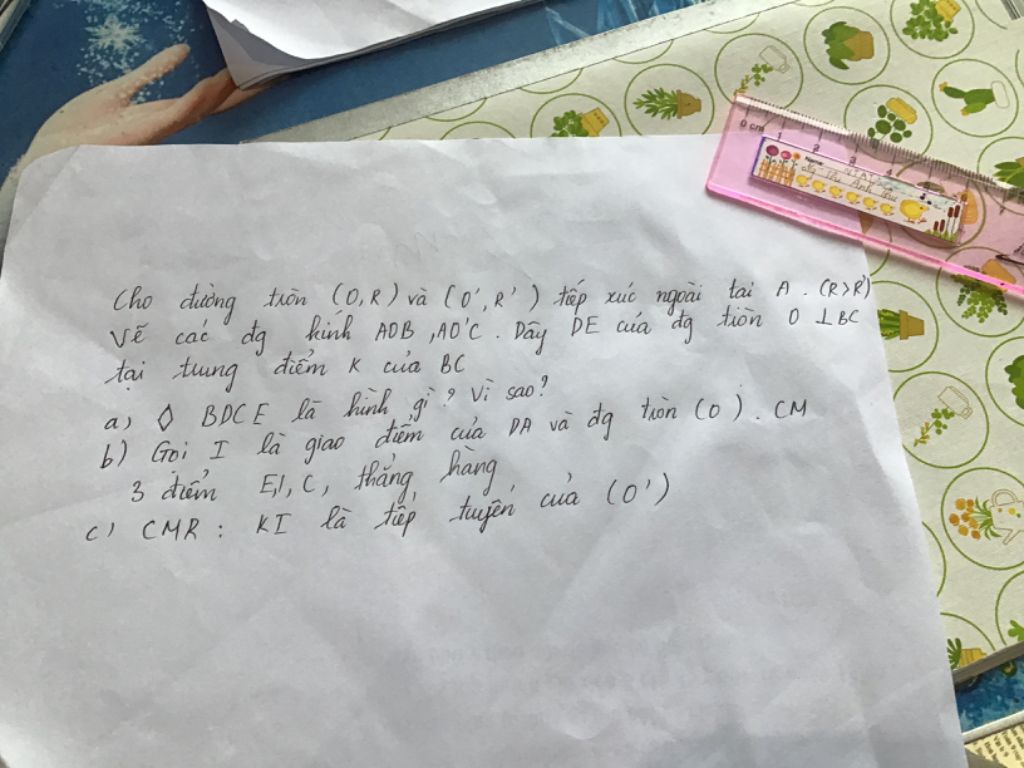 Cho đường tròn (O,R) và (O', R') tiếp xúc ngoài tại A. (R>R')
Vẽ các đg kính AOB, AO'C. Dây DE của đg tròn O ⊥ BC
tại trung điểm K của BC
a, ◊ BDCE là hình gì? Vì sao?
b) Gọi I là giao điểm của DA và đg tròn (O). CM
3 điểm E,I,C, thẳng hàng
c, CMR: KI là tiếp tuyến của (O')
0 cm 1 2 3 4
Name: